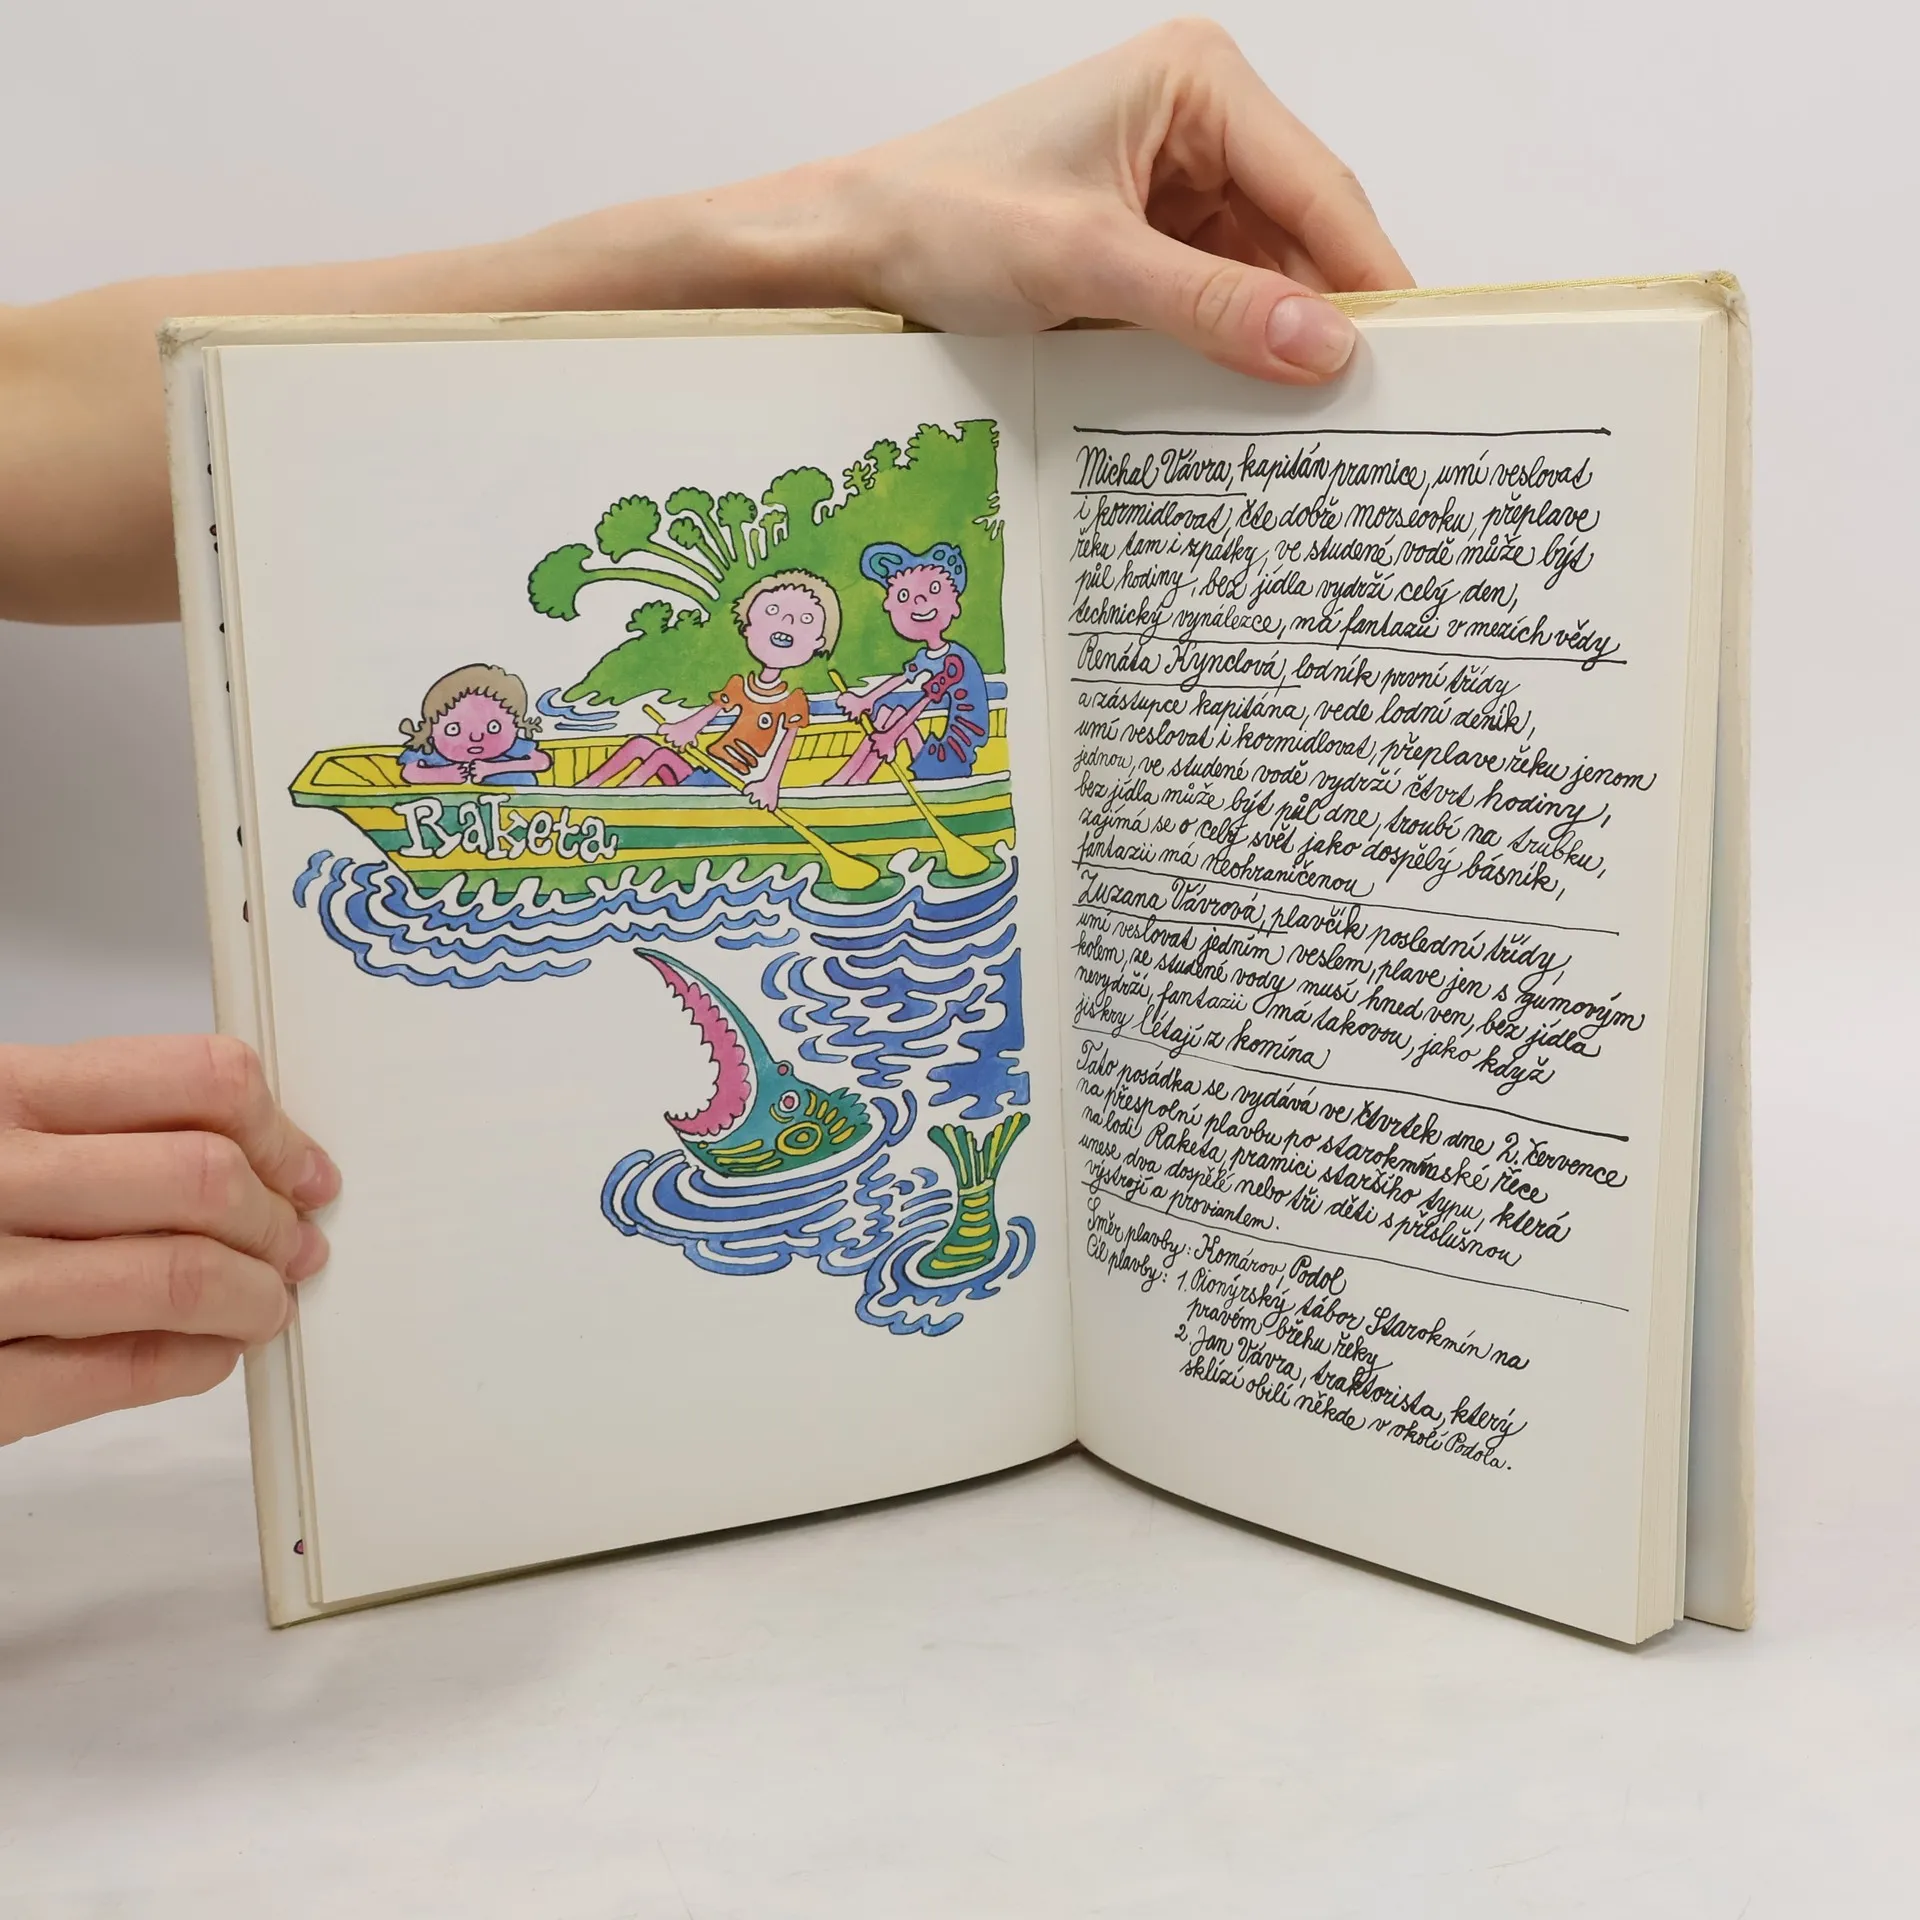 Raketa
Michal Vávra, kapitán pramice, umí veslovat
i kormidlovat, čte dobře morseovku, přeplave
řeku tam i zpátky, ve studené vodě může být
půl hodiny, bez jídla vydrží celý den,
technický vynálezce, má fantazii v mezích vědy
Renáta Kynclová, lodník první třídy
a zástupce kapitána, vede lodní deník,
umí veslovat i kormidlovat, přeplave řeku jenom
jednou, ve studené vodě vydrží čtvrt hodiny,
bez jídla může být půl dne, troubí na trubku,
zajímá se o celý svět jako dospělý básník,
fantazii má neohraničenou
Zuzana Vávrová, plavčík poslední třídy,
umí veslovat jedním veslem, plave jen s gumovým
kolem, ze studené vody musí hned ven, bez jídla
nevydrží, fantazii má takovou, jako když
jiskry létají z komína
Tato posádka se vydává ve čtvrtek dne 2. července
na přespolní plavbu po starokmínské řece
na lodi Raketa, pramici staršího typu, která
unese dva dospělé nebo tři děti s příslušnou
výstrojí a proviantem.
Směr plavby: Komárov, Podol
Cíl plavby: 1. Pionýrský tábor Starokmín na
pravém břehu řeky
2. Jan Vávra, traktorista, který
sklízí obilí někde v okolí Podola.